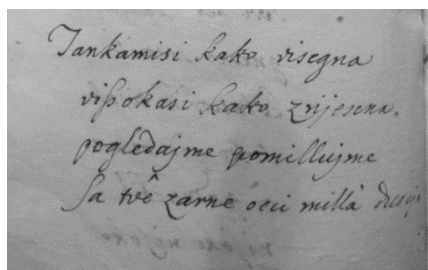 Tankamisi kako visegna
vißokasi kako zrijesena.
pogledajme pomillujme
ſa tvê zarne oeci millà